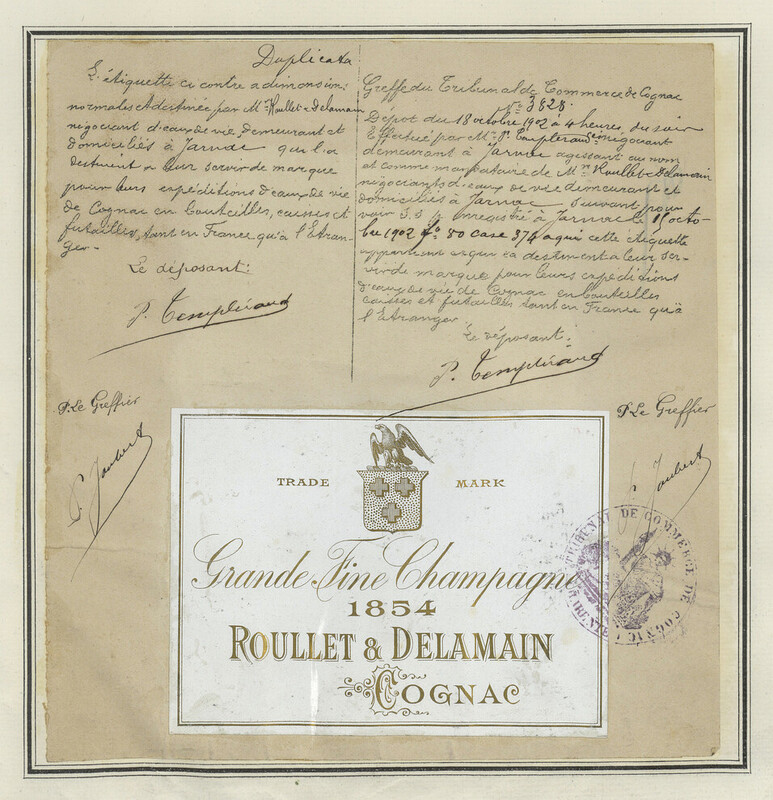 Duplicata
L'étiquette ci contre a dimensions
normales et destinée par Mrs Roullet & Delamain
négociant d'eaux de vie demeurant et
domiciliés à Jarnac qui la
destinent a leur servir de marque
pour leurs expéditions d'eaux de vie
de Cognac en bouteilles, caisses et
futailles, tant en France qu'à l'Etran-
ger.-
Le déposant:
P. Templéraud
P. Le Greffier
P. Jaubert
Greffe du Tribunal de Commerce de Cognac
No 3828.
Dépôt du 18 octobre 1902 à 4 heures, du soir
Effectué par Mr P. Templeraud négociant
demeurant à Jarnac agissant au nom
et comme mandataire de Mrs Roullet & Delamain
négociants d'eaux de vie demeurant et
domiciliés à Jarnac, suivant pou-
voir S.S.P. enregistré à Jarnac le 15 octo-
bre 1902 fo 80 case 374 a qui cette étiquette
appartient et qui la destinent a leur ser-
vir de marque pour leurs expéditions
d'eaux de vie de Cognac en bouteilles
caisses et futailles tant en France qu'à
l'Etranger
Le déposant:
P. Templéraud
P. Le Greffier
P. Jaubert
TRIBUNAL DE COMMERCE DE COGNAC
TRADE MARK
Grande Fine Champagne
1854
ROULLET & DELAMAIN
COGNAC